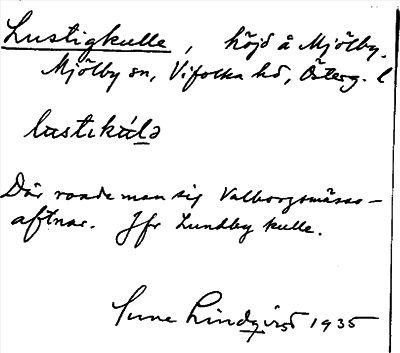 Lustigkulle, höjd å Mjölby.
Mjölby sn, Vifolka hd, Österg. l
lustikúlə
Där roade man sig Valborgsmässo-
aftnar. Jfr Lundby kulle.
Sune Lindqvist 1935